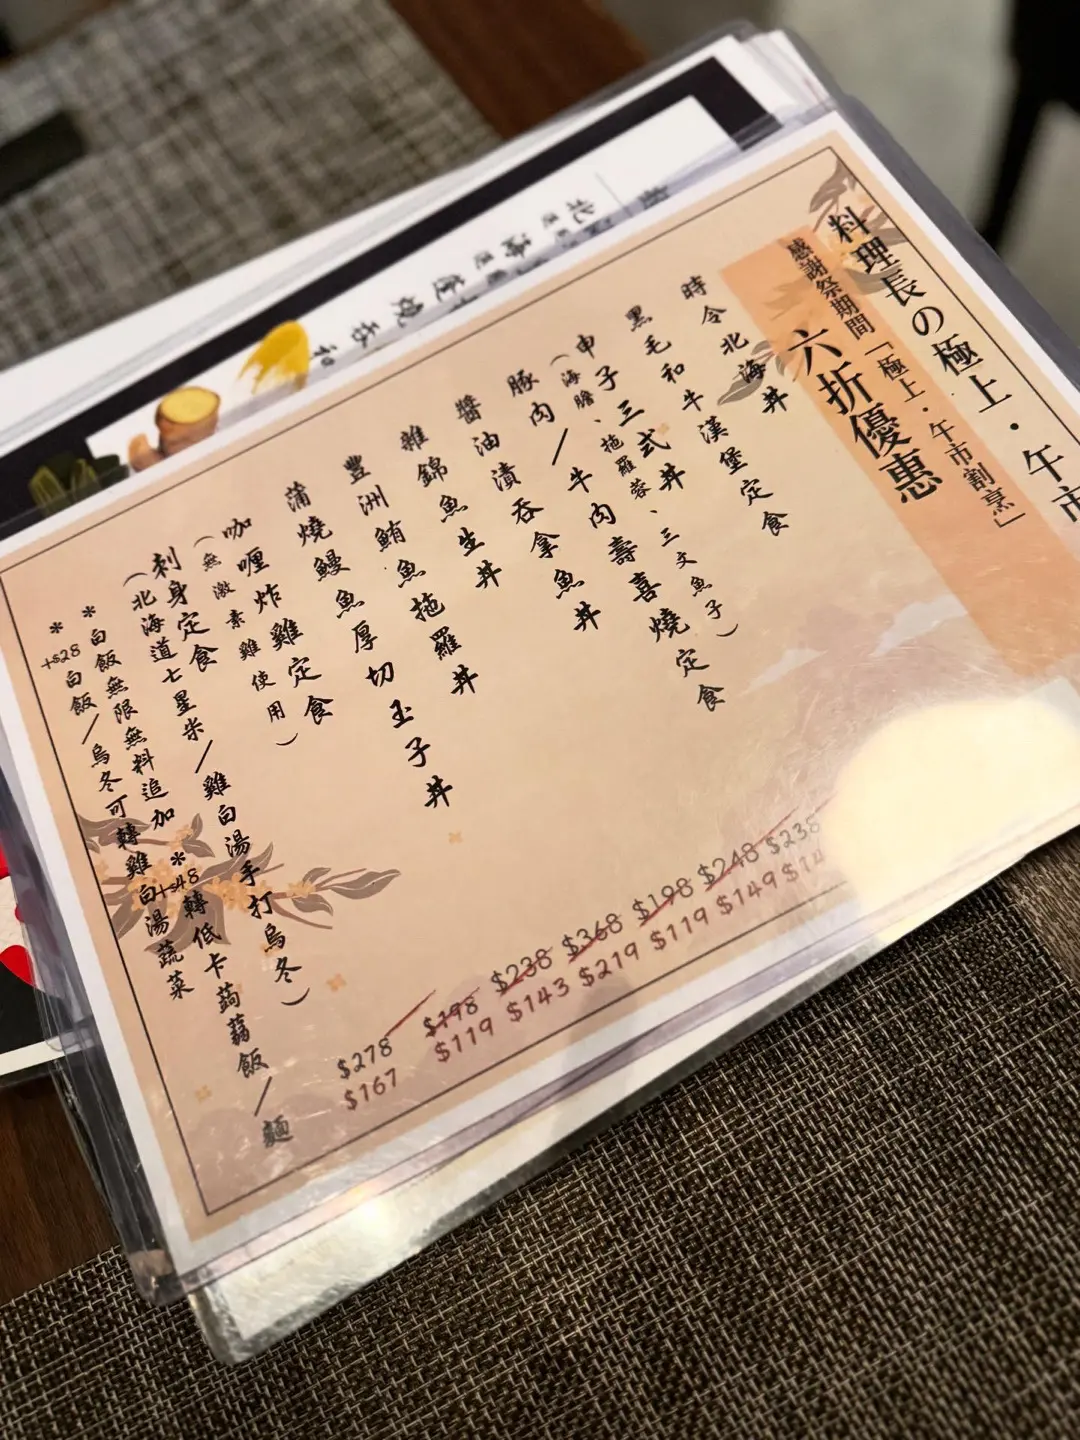 料理長の極上・午市
感謝祭期間「極上・午市割烹」
六折優惠
時令北海丼
黑毛和牛漢堡定食
申子三式丼
（海膽、拖羅蓉、三文魚子）
豚肉／牛肉壽喜燒定食
醬油漬吞拿魚丼
雜錦魚生丼
豐洲鮪魚拖羅丼
蒲燒鰻魚厚切玉子丼
咖喱炸雞定食
（無激素雞使用）
刺身定食
（北海道七星米／雞白湯手打烏冬）
*白飯無限無料追加 *+$48轉低卡蒟蒻飯／麵
*+$28白飯／烏冬可轉雞白湯蔬菜
$278 $198 $238 $368 $198 $248 $238
$167 $119 $143 $219 $119 $149 $14